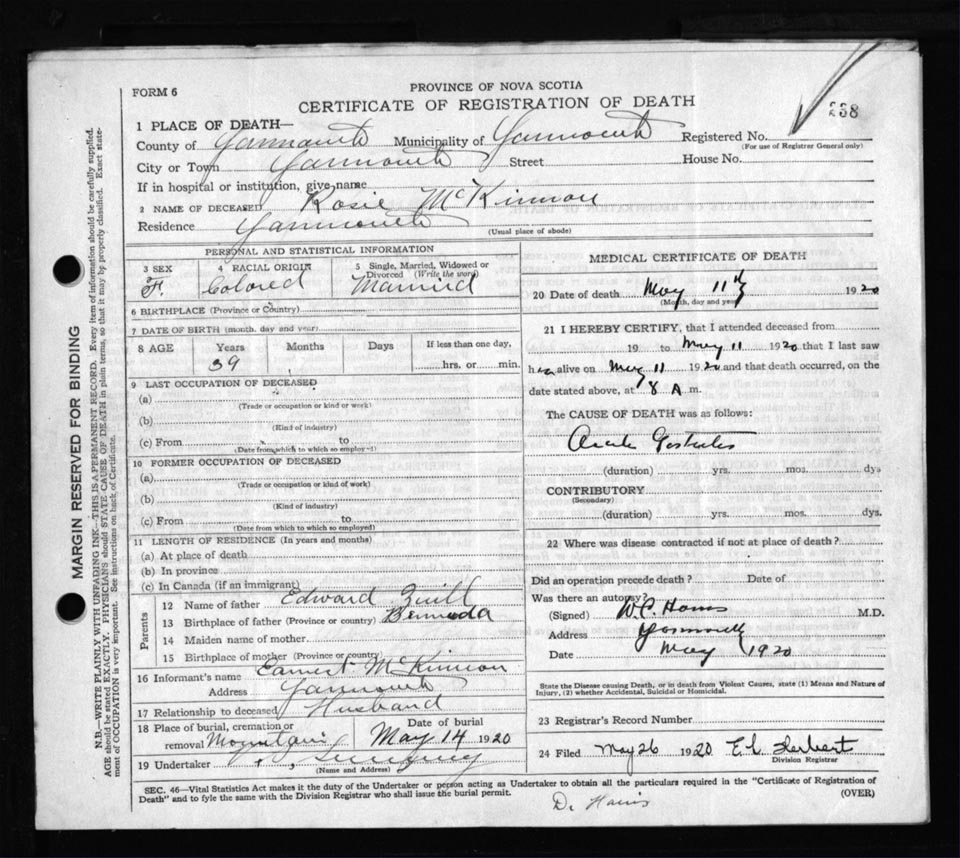 FORM 6
PROVINCE OF NOVA SCOTIA
CERTIFICATE OF REGISTRATION OF DEATH
238
1 PLACE OF DEATH—
County of Yarmouth Municipality of Yarmouth Registered No.
(For use of Registrar General only)
City or Town Yarmouth Street House No.
If in hospital or institution, give name
2 NAME OF DECEASED Rosie McKinnon
Residence Yarmouth
(Usual place of abode)
PERSONAL AND STATISTICAL INFORMATION
3 SEX
F.
4 RACIAL ORIGIN
Colored
5 Single, Married, Widowed or
Divorced (Write the word)
Married
6 BIRTHPLACE (Province or Country)
7 DATE OF BIRTH (month, day and year)
8 AGE Years Months Days If less than one day,
39 hrs. or min.
9 LAST OCCUPATION OF DECEASED
(a)
(Trade or occupation or kind of work)
(b)
(Kind of industry)
(c) From to
(Date from which to which so employed)
10 FORMER OCCUPATION OF DECEASED
(a)
(Trade or occupation or kind of work)
(b)
(Kind of industry)
(c) From to
(Date from which to which so employed)
11 LENGTH OF RESIDENCE (In years and months)
(a) At place of death
(b) In province
(c) In Canada (if an immigrant)
Parents
12 Name of father Edward
13 Birthplace of father (Province or country) Bermuda
14 Maiden name of mother
15 Birthplace of mother (Province or country)
16 Informant's name Earnest McKinnon
Address Yarmouth
17 Relationship to deceased Husband
18 Place of burial, cremation or
removal
Date of burial
May 14 1920
19 Undertaker
(Name and Address)
MEDICAL CERTIFICATE OF DEATH
20 Date of death May 11th 1920
(Month, day and year)
21 I HEREBY CERTIFY, that I attended deceased from
19 to May 11 1920 that I last saw
her alive on May 11 1920 and that death occurred, on the
date stated above, at 8 A m.
The CAUSE OF DEATH was as follows:
Acute
(duration) yrs. mos. dys
CONTRIBUTORY
(Secondary)
(duration) yrs. mos. dys.
22 Where was disease contracted if not at place of death?
Did an operation precede death? Date of
Was there an autopsy?
(Signed) M.D.
Address Yarmouth
Date May 1920
State the Disease causing Death, or in death from Violent Causes, state (1) Means and Nature of
Injury, (2) whether Accidental, Suicidal or Homicidal.
23 Registrar's Record Number
24 Filed May 26 1920 Herbert
Division Registrar
SEC. 46—Vital Statistics Act makes it the duty of the Undertaker or person acting as Undertaker to obtain all the particulars required in the "Certificate of Registration of
Death" and to fyle the same with the Division Registrar who shall issue the burial permit.
(OVER)
Dr Harris
MARGIN RESERVED FOR BINDING
N.B.—WRITE PLAINLY WITH UNFADING INK—THIS IS A PERMANENT RECORD. Every item of information should be carefully supplied.
AGE should be stated EXACTLY. PHYSICIANS should STATE CAUSE OF DEATH in plain terms, so that it may be properly classified. Exact state-
ment of OCCUPATION is very important. See instructions on back of Certificate.